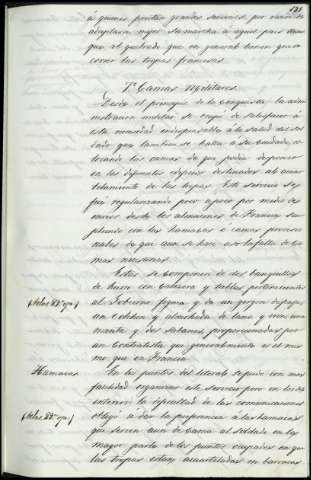 á quienes prestan grandes servicios, por razon de
adaptarse mejor su marcha á aquel pais
que al quebrado que en general tienen que re-
correr las tropas francesas.
7.º Camas Militares.
Desde el principio de la conquista la admi-
nistracion militar se ocupó de satisfacer á
esta necesidad indispensable á la salud del sol-
dado que tambien se halla á su cuidado, co-
locando las camas de que podia disponer
en los diferentes edificios destinados al acuar-
telamiento de las tropas. Este servicio se
fué regularizando poco á poco por medio de
envios desde los almacenes de Francia su-
pliendo con las hamacas ó camas provisio-
nales de que aun se hace uso la falta de ca-
mas
Estas se componen de dos banquillos
de hierro con cabecera y tablas pertenecientes
al Gobierno
un colchon y almohada de lana y crin una
manta y dos sabanas, proporcionadas por
un contratista que generalmente es el mis-
mo que en Francia.
Hamacas
En los puntos del litoral se pudo con mas
facilidad organizar este servicio pero en los del
interior la dificultad de las comunicaciones
obligó á dar la preferencia á las hamacas
que sirven aun de cama al soldado en la
mayor parte de los puntos ocupados en que
las tropas estan acuarteladas en barracas